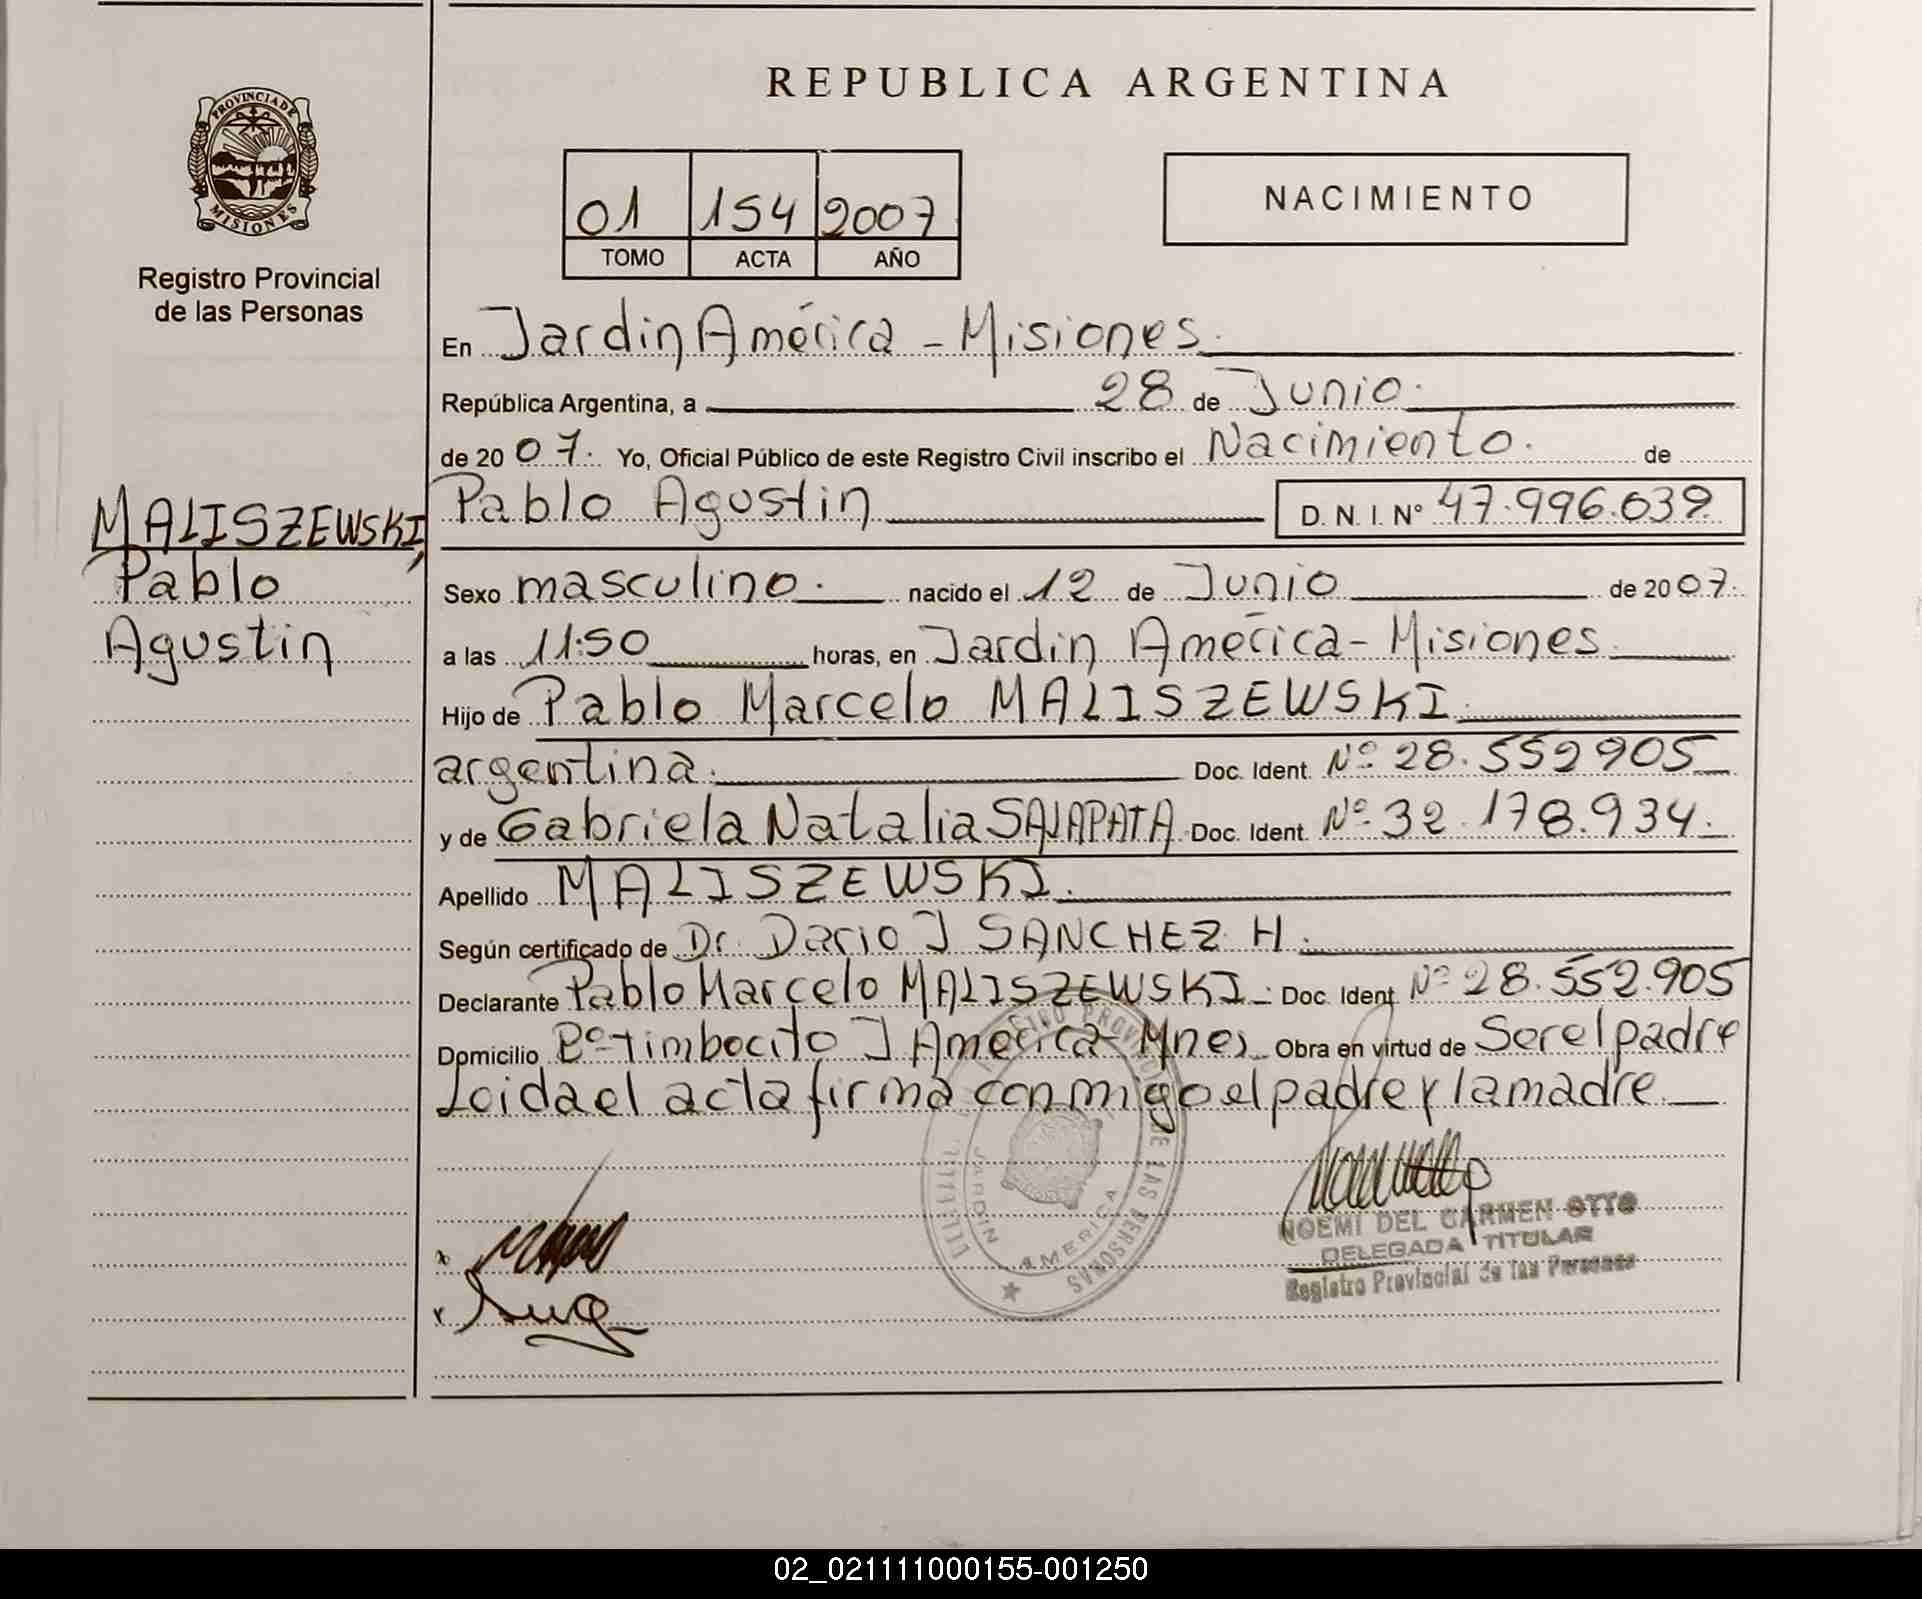 REPUBLICA ARGENTINA
PROVINCIA DE
MISIONES
Registro Provincial
de las Personas
01 154 2007
TOMO ACTA AÑO
NACIMIENTO
MALISZEWSKI,
Pablo
Agustin
En Jardin América - Misiones.
República Argentina, a 28 de Junio.
de 20 07. Yo, Oficial Público de este Registro Civil inscribo el Nacimiento. de
Pablo Agustin D. N. I. Nº 47.996.039
Sexo masculino. nacido el 12 de Junio de 20 07.
a las 11:50 horas, en Jardin América - Misiones
Hijo de Pablo Marcelo MALISZEWSKI
argentina. Doc. Ident. Nº 28.552905
y de Gabriela Natalia Doc. Ident. Nº 32.178.934.
Apellido MALISZEWSKI.
Según certificado de Dr. Dario J SANCHEZ H.
Declarante Pablo Marcelo MALISZEWSKI. Doc. Ident. Nº 28.552.905
Domicilio Bº Timbocito J América - Mnes Obra en virtud de Ser el padre
Leida el acta firma conmigo el padre y la madre
REGISTRO PROVINCIAL DE LAS PERSONAS
JARDIN AMERICA
NOEMI DEL CARMEN OTTO
DELEGADA TITULAR
Registro Provincial de las Personas
02_021111000155-001250